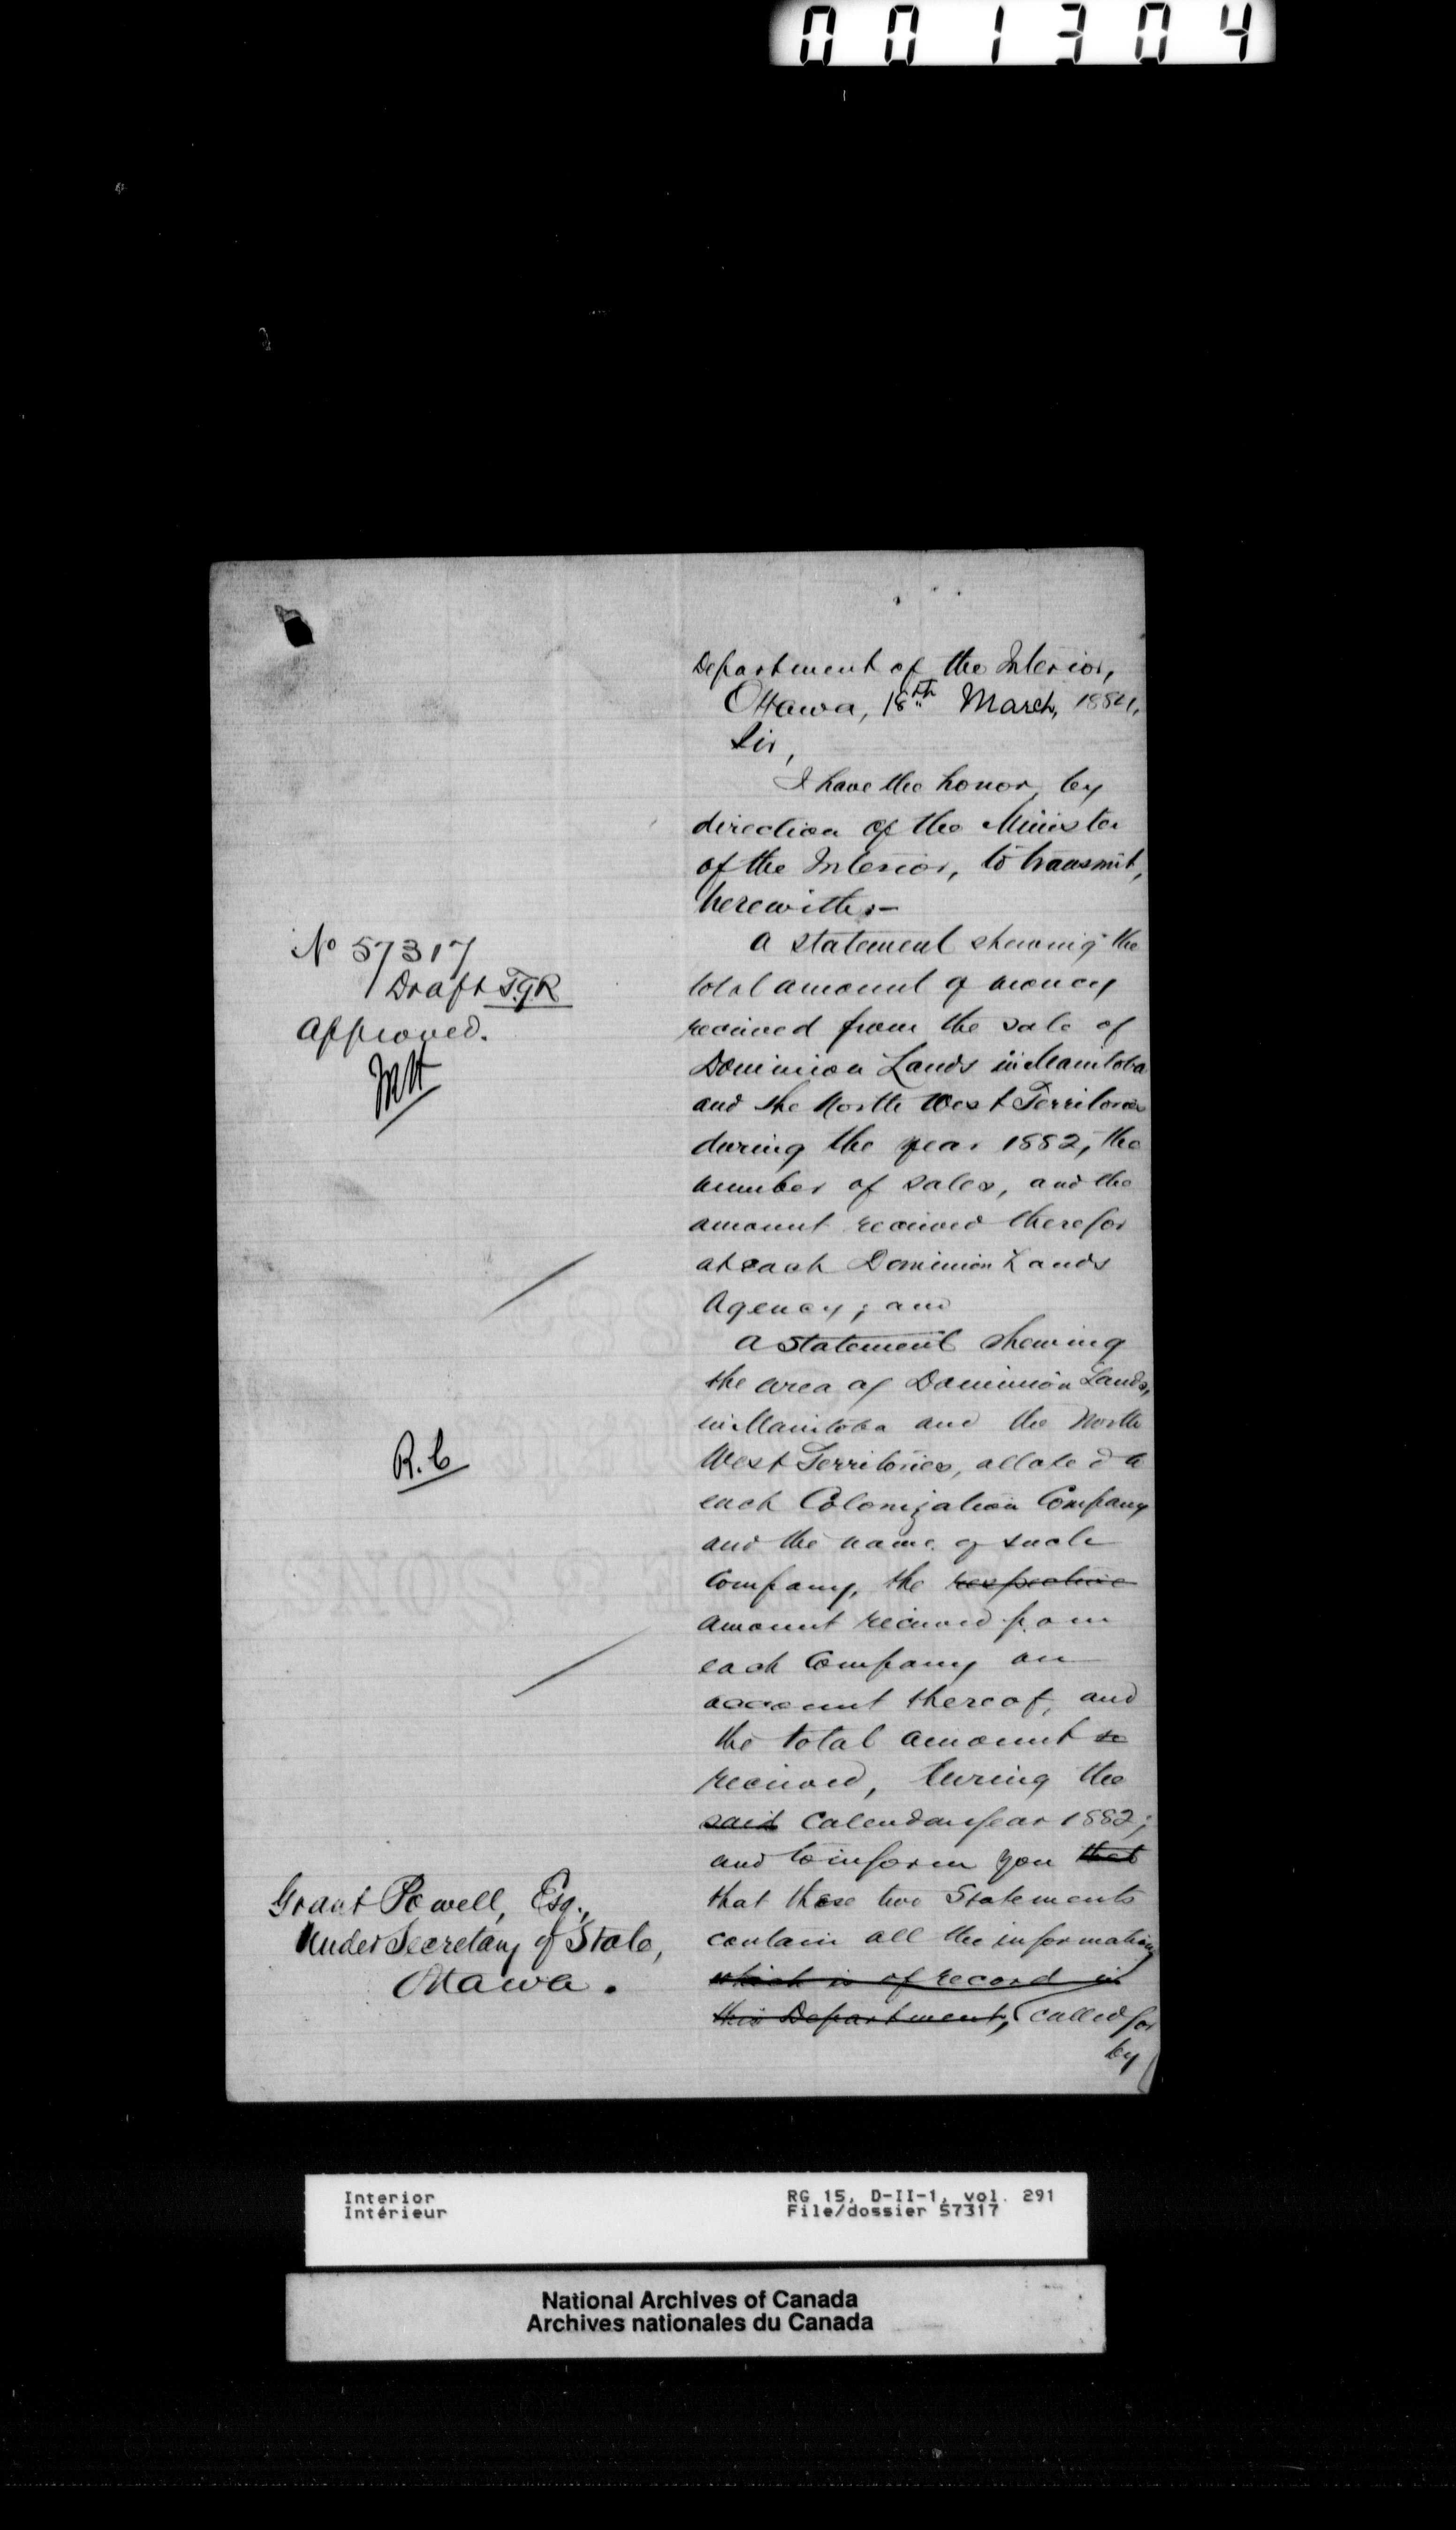 001304
Department of the Interior,
Ottawa, 18th March, 1884,
Sir,
I have the honor, by
direction of the Minister
of the Interior, to transmit,
herewith:—
a statement shewing the
total amount of money
received from the sale of
Dominion Lands in Manitoba
and the North West Territories
during the year 1882, the
number of sales, and the
amount received therefor
at each Dominion Lands
Agency; and
a statement shewing
the area of Dominion Lands,
in Manitoba and the North
West Territories, allotted to
each Colonization Company
and the name of such
Company, the respective
amount received from
each Company on
account thereof, and
the total amount so
received, during the
said Calendar year 1882;
and to inform you that
that these two Statements
contain all the information
which is of record in
this Department, called for
by
No 57317
Draft T.G.R
Approved.
R.C
Grant Powell, Esq.,
Under Secretary of State,
Ottawa.
Interior
Intérieur
RG 15, D-II-1, vol. 291
File/dossier 57317
National Archives of Canada
Archives nationales du Canada